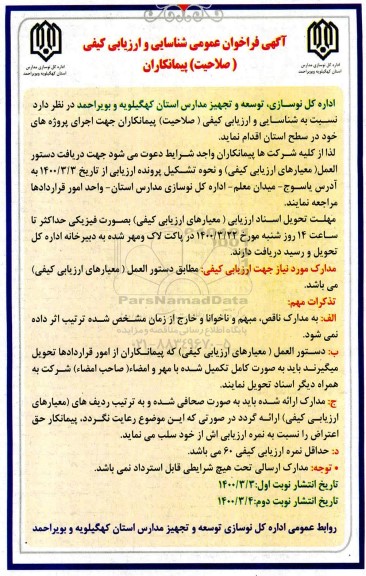 آگهی فراخوان عمومی شناسایی و ارزیابی کیفی
( صلاحیت) پیمانکاران
اداره کل نوسازی مدارس
استان کهگیلویه وبویراحمد
اداره کل نوسازی مدارس
استان کهگیلویه وبویراحمد
اداره کل نوسازی، توسعه و تجهیز مدارس استان کهگیلویه و بویراحمد در نظر دارد
نسبت به شناسایی و ارزیابی کیفی ( صلاحیت) پیمانکاران جهت اجرای پروژه های
خود در سطح استان اقدام نماید.
لذا از کلیه شرکت ها پیمانکاران واجد شرایط دعوت می شود جهت دریافت دستور
العمل( معیارهای ارزیابی کیفی) و نحوه تشکیل پرونده ارزیابی از تاریخ ۱۴۰۰/۳/۳ به
آدرس یاسوج- میدان معلم- اداره کل نوسازی مدارس استان- واحد امور قراردادها
مراجعه نمایند.
مهلت تحویل اسناد ارزیابی ( معیارهای ارزیابی کیفی) بصورت فیزیکی حداکثر تا
ساعت ۱۴ روز شنبه مورخ ۱۴۰۰/۳/۲۲ در پاکت لاک ومهر شده به دبیرخانه اداره کل
تحویل و رسید دریافت دارند.
مدارک مورد نیاز جهت ارزیابی کیفی: مطابق دستور العمل ( معیارهای ارزیابی کیفی)
می باشد.
تذکرات مهم:
الف: به مدارک ناقص، مبهم و ناخوانا و خارج از زمان مشخص شده ترتیب اثر داده
نمی شود.
ب: دستور العمل ( معیارهای ارزیابی کیفی) که پیمانکاران از امور قراردادها تحویل
میگیرند باید به صورت کامل تکمیل شده با مهر و امضاء( صاحب امضاء) شرکت به
همراه دیگر اسناد تحویل نمایند.
ج: مدارک ارائه شده باید به صورت صحافی شده و به ترتیب ردیف های (معیارهای
ارزیابی کیفی) ارائه گردد در صورتی که این موضوع رعایت نگردد، پیمانکار حق
اعتراض را نسبت به نمره ارزیابی اش از خود سلب می نماید.
د: حداقل نمره ارزیابی کیفی ۶۰ می باشد.
• توجه: مدارک ارسالی تحت هیچ شرایطی قابل استرداد نمی باشد.
تاریخ انتشار نوبت اول:۱۴۰۰/۳/۳
تاریخ انتشار نوبت دوم:۱۴۰۰/۳/۴
روابط عمومی اداره کل نوسازی توسعه و تجهیز مدارس استان کهگیلویه و بویراحمد
ParsNamadData
پایگاه اطلاع رسانی مناقصه و مزایده
۰۲۱-۸۸۳۴۹۶۷۰-۵